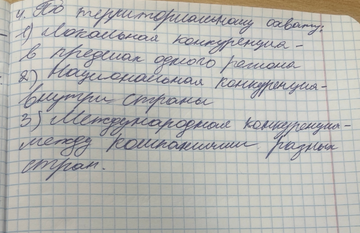 4. По территориальному охвату:
1) Локальная конкуренция -
в пределах одного региона
2) Национальная конкуренция-
внутри страны
3) Международная конкуренция-
между компаниями разных
стран.